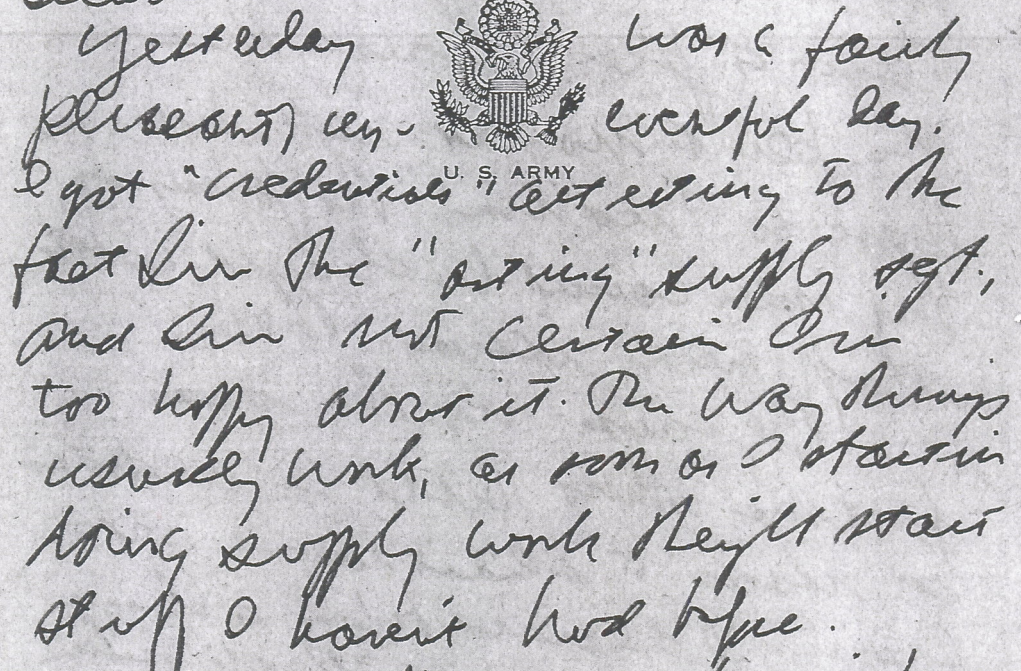 Yesterday was a fairly
pleasant, un- eventful day.
U. S. ARMY
I got "credentials" attesting to the
fact I'm the "acting" supply sgt.,
and I'm not certain I'm
too happy about it. The way things
usually work, as soon as I start in
doing supply work they'll start
stuff I haven't had before.